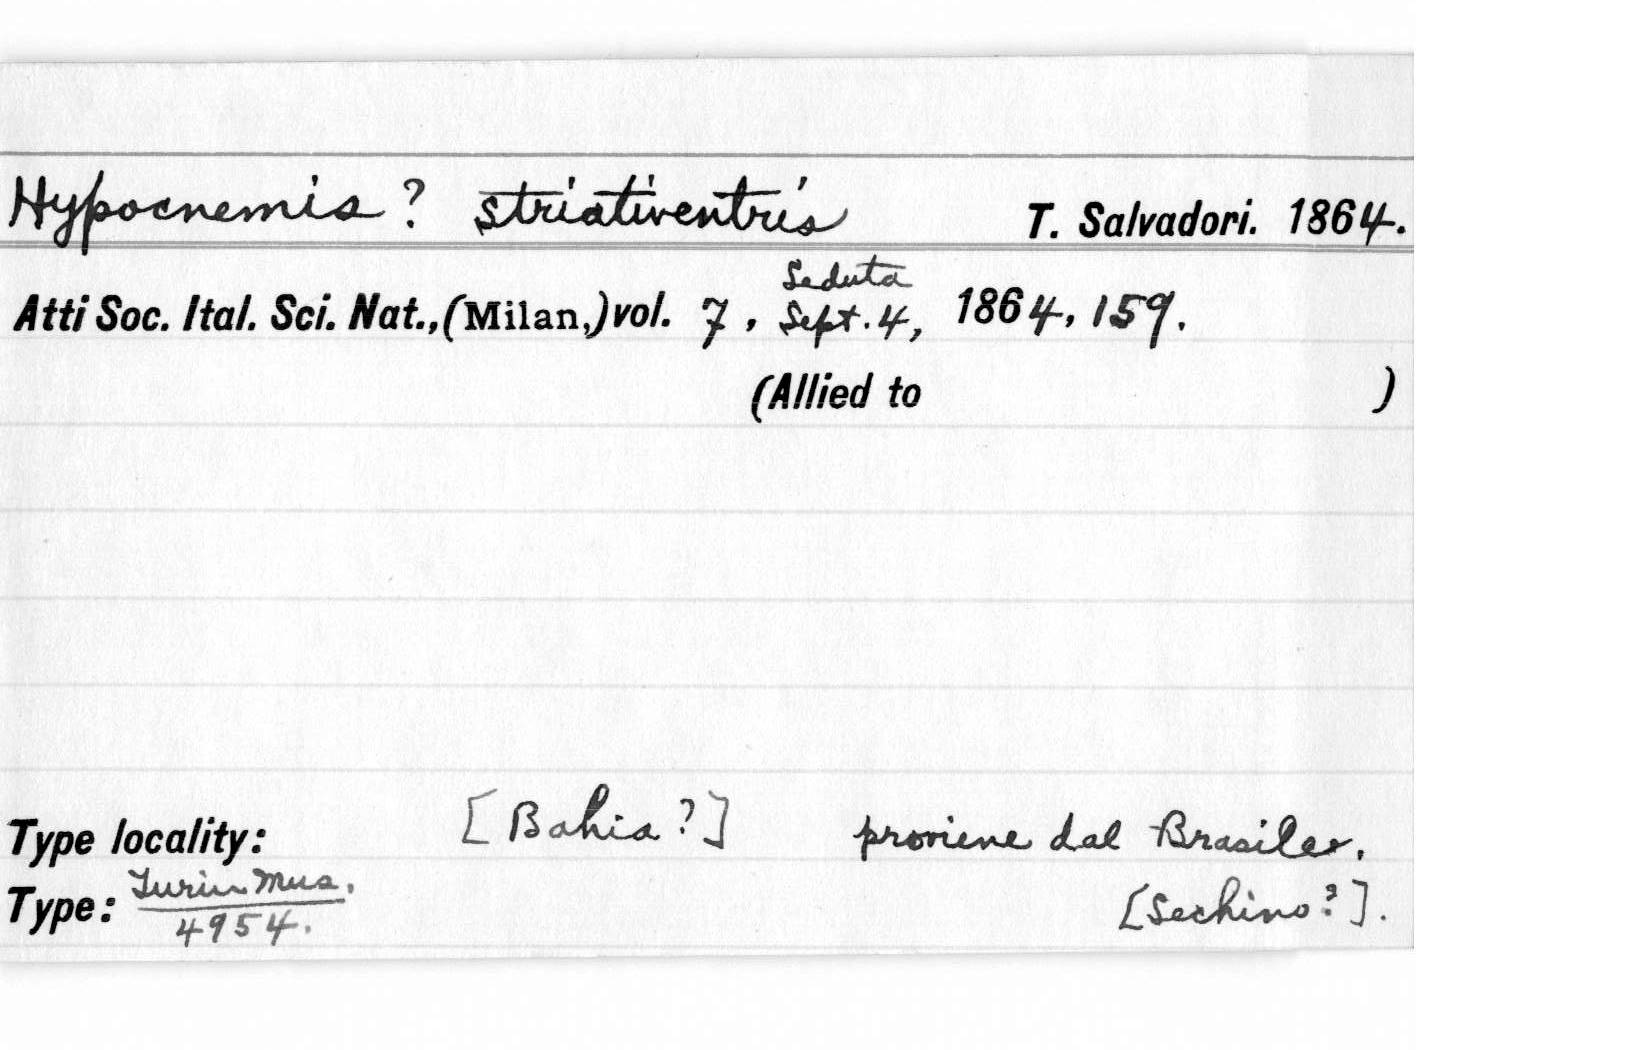 Hypocnemis ? striativentris T. Salvadori. 1864.
Seduta
Atti Soc. Ital. Sci. Nat., (Milan,) vol. 7, Sept. 4, 1864, 159.
(Allied to )
Type locality: [Bahia ?] proviene dal Brasile.
Type: Turin Mus. [Sechino ?].
4954.